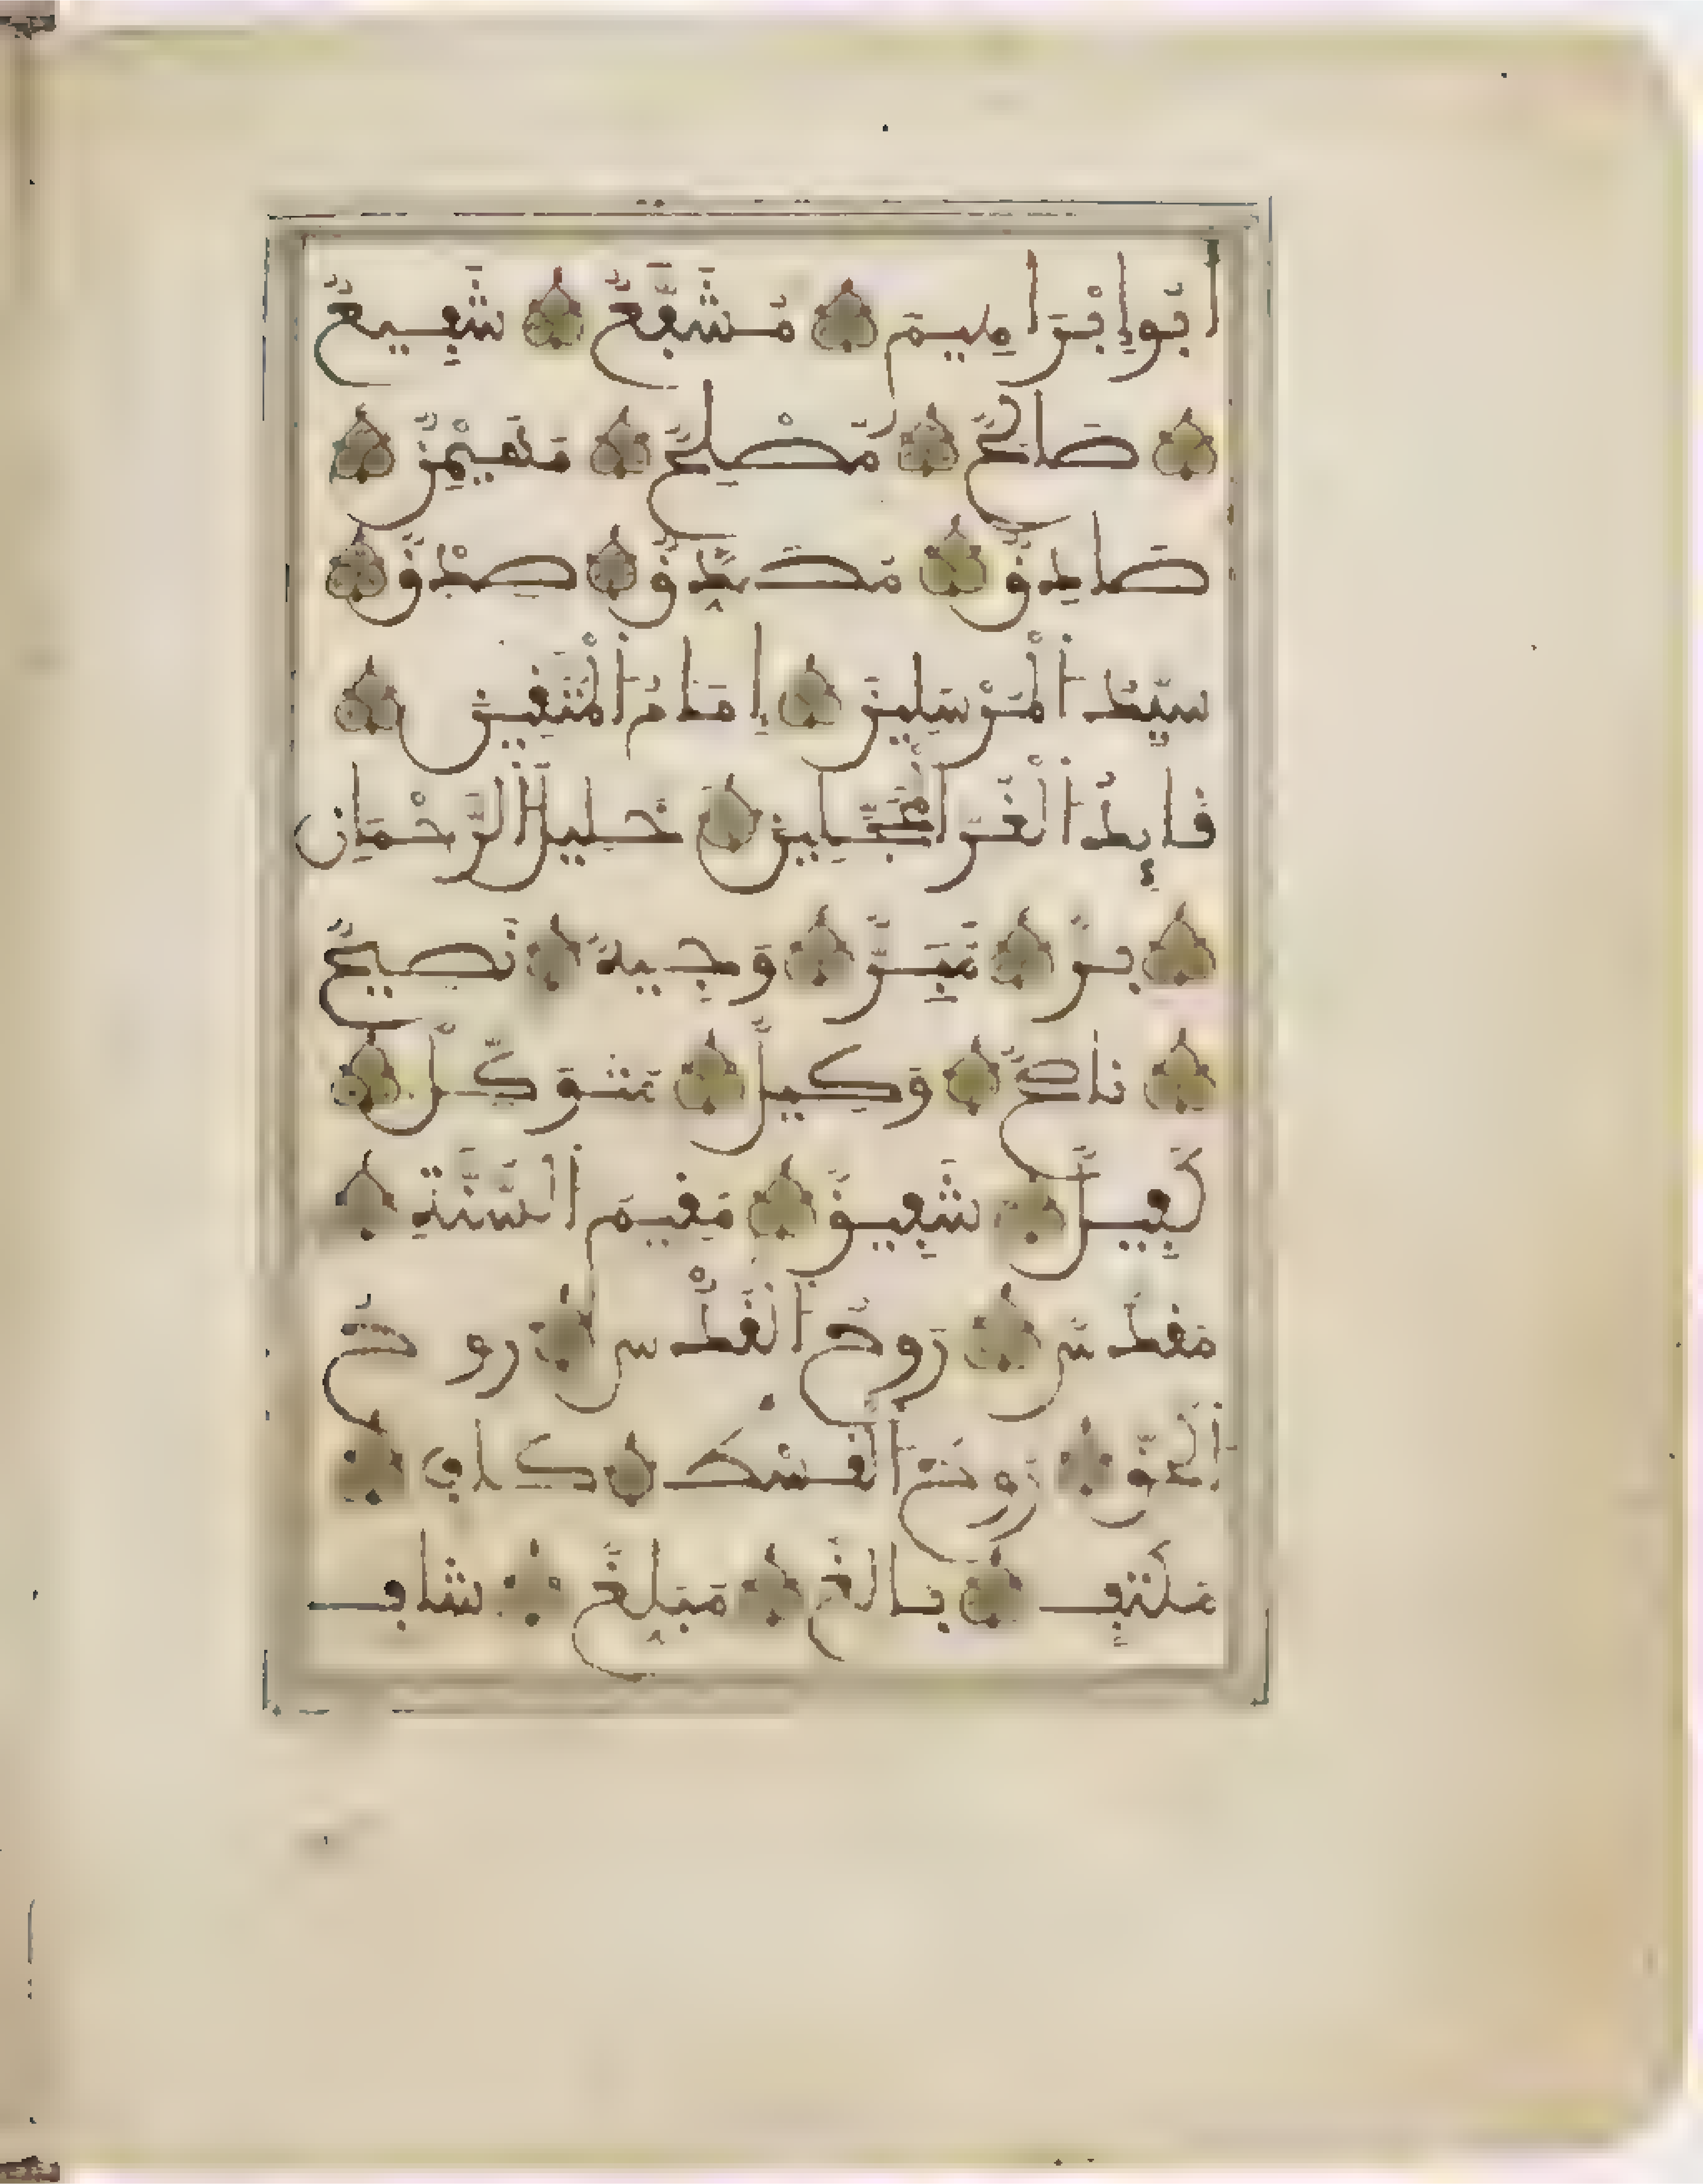 أَبُو إِبْرَاهِيمَ مُشَفَّعٌ شَفِيعٌ
صَالِحٌ مُصْلِحٌ مُهَيْمِنٌ
صَادِقٌ مُصَدِّقٌ صِدْقٌ
سَيِّدُ الْمُرْسَلِينَ إِمَامُ الْمُتَّقِينَ
قَائِدُ الْغُرِّ الْمُحَجَّلِينَ خَلِيلُ الرَّحْمَانِ
بَرٌّ مُبَرٌّ وَجِيهٌ نَصِيحٌ
نَاصِحٌ وَكِيلٌ مُتَوَكِّلٌ
كَفِيلٌ شَفِيقٌ مُقِيمُ السُّنَّةِ
مُقَدَّسٌ رُوحُ الْقُدْسِ رُوحُ
الْحَقِّ رُوحُ الْقِسْطِ كَافٍ
مُكْتَفٍ بَالِغٌ مُبَلِّغٌ شَافٍ